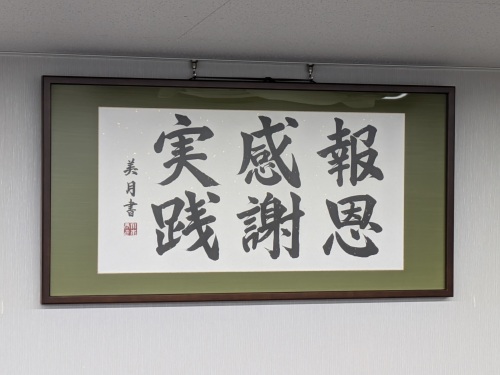 報恩
感謝
実践
美月書